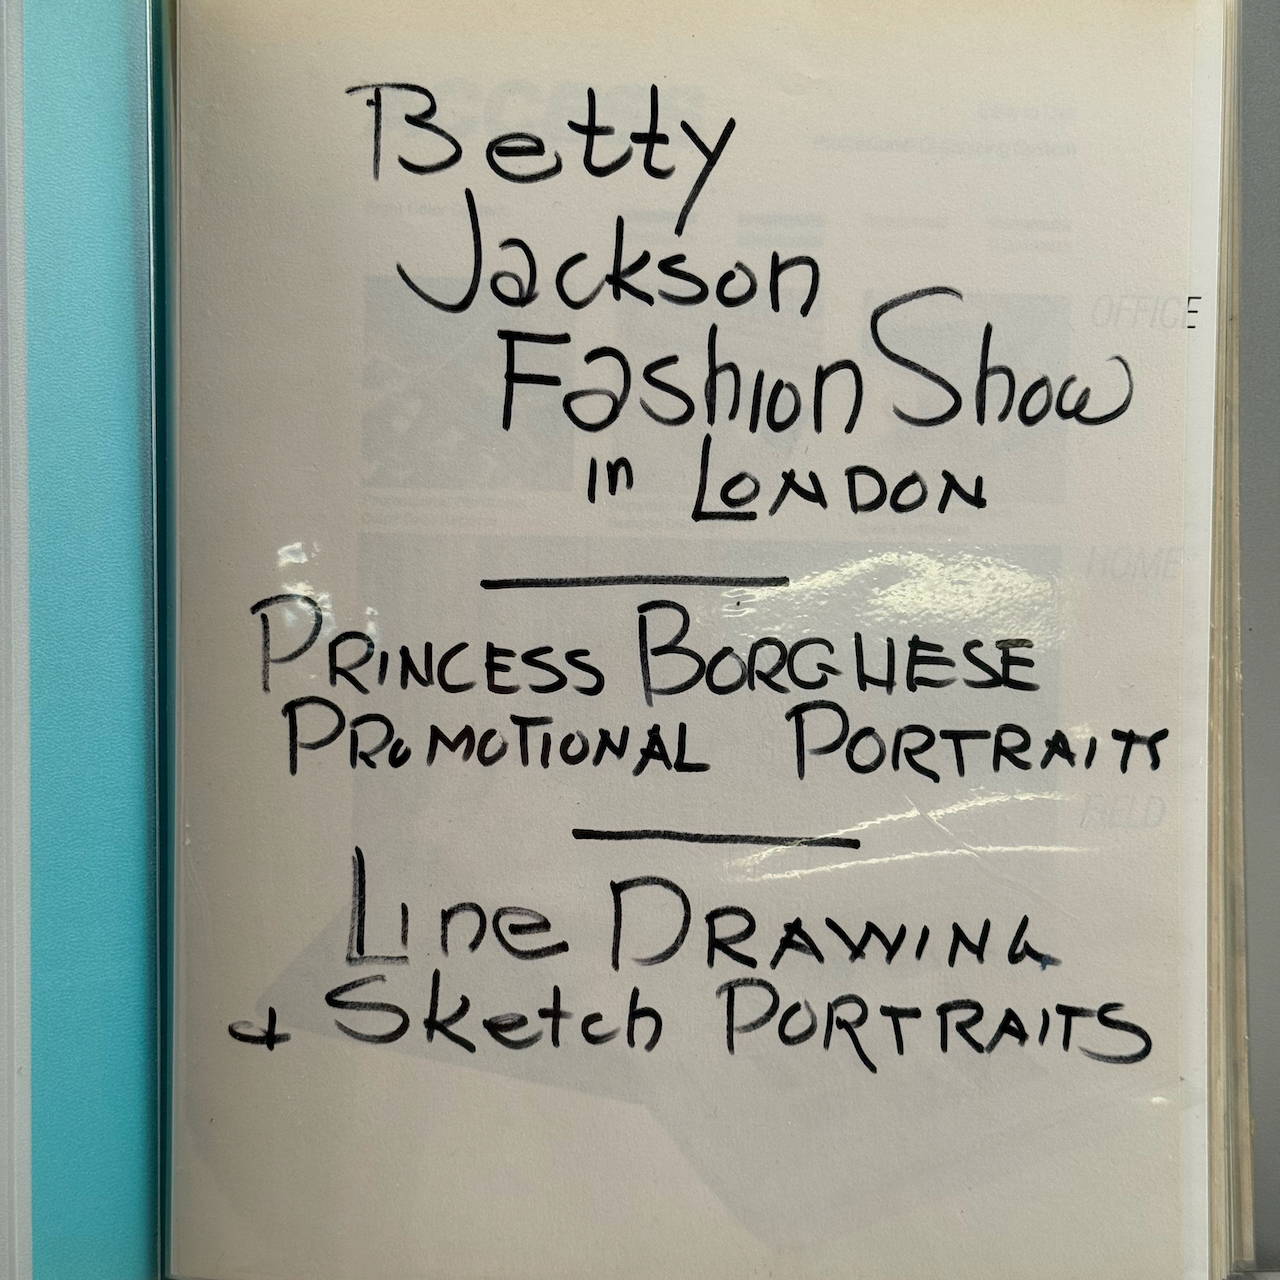 Betty
Jackson
Fashion Show
in LONDON
PRINCESS BORGHESE
PROMOTIONAL PORTRAITS
Line DRAWING
+ Sketch PORTRAITS
OFFICE
HOME
FIELD